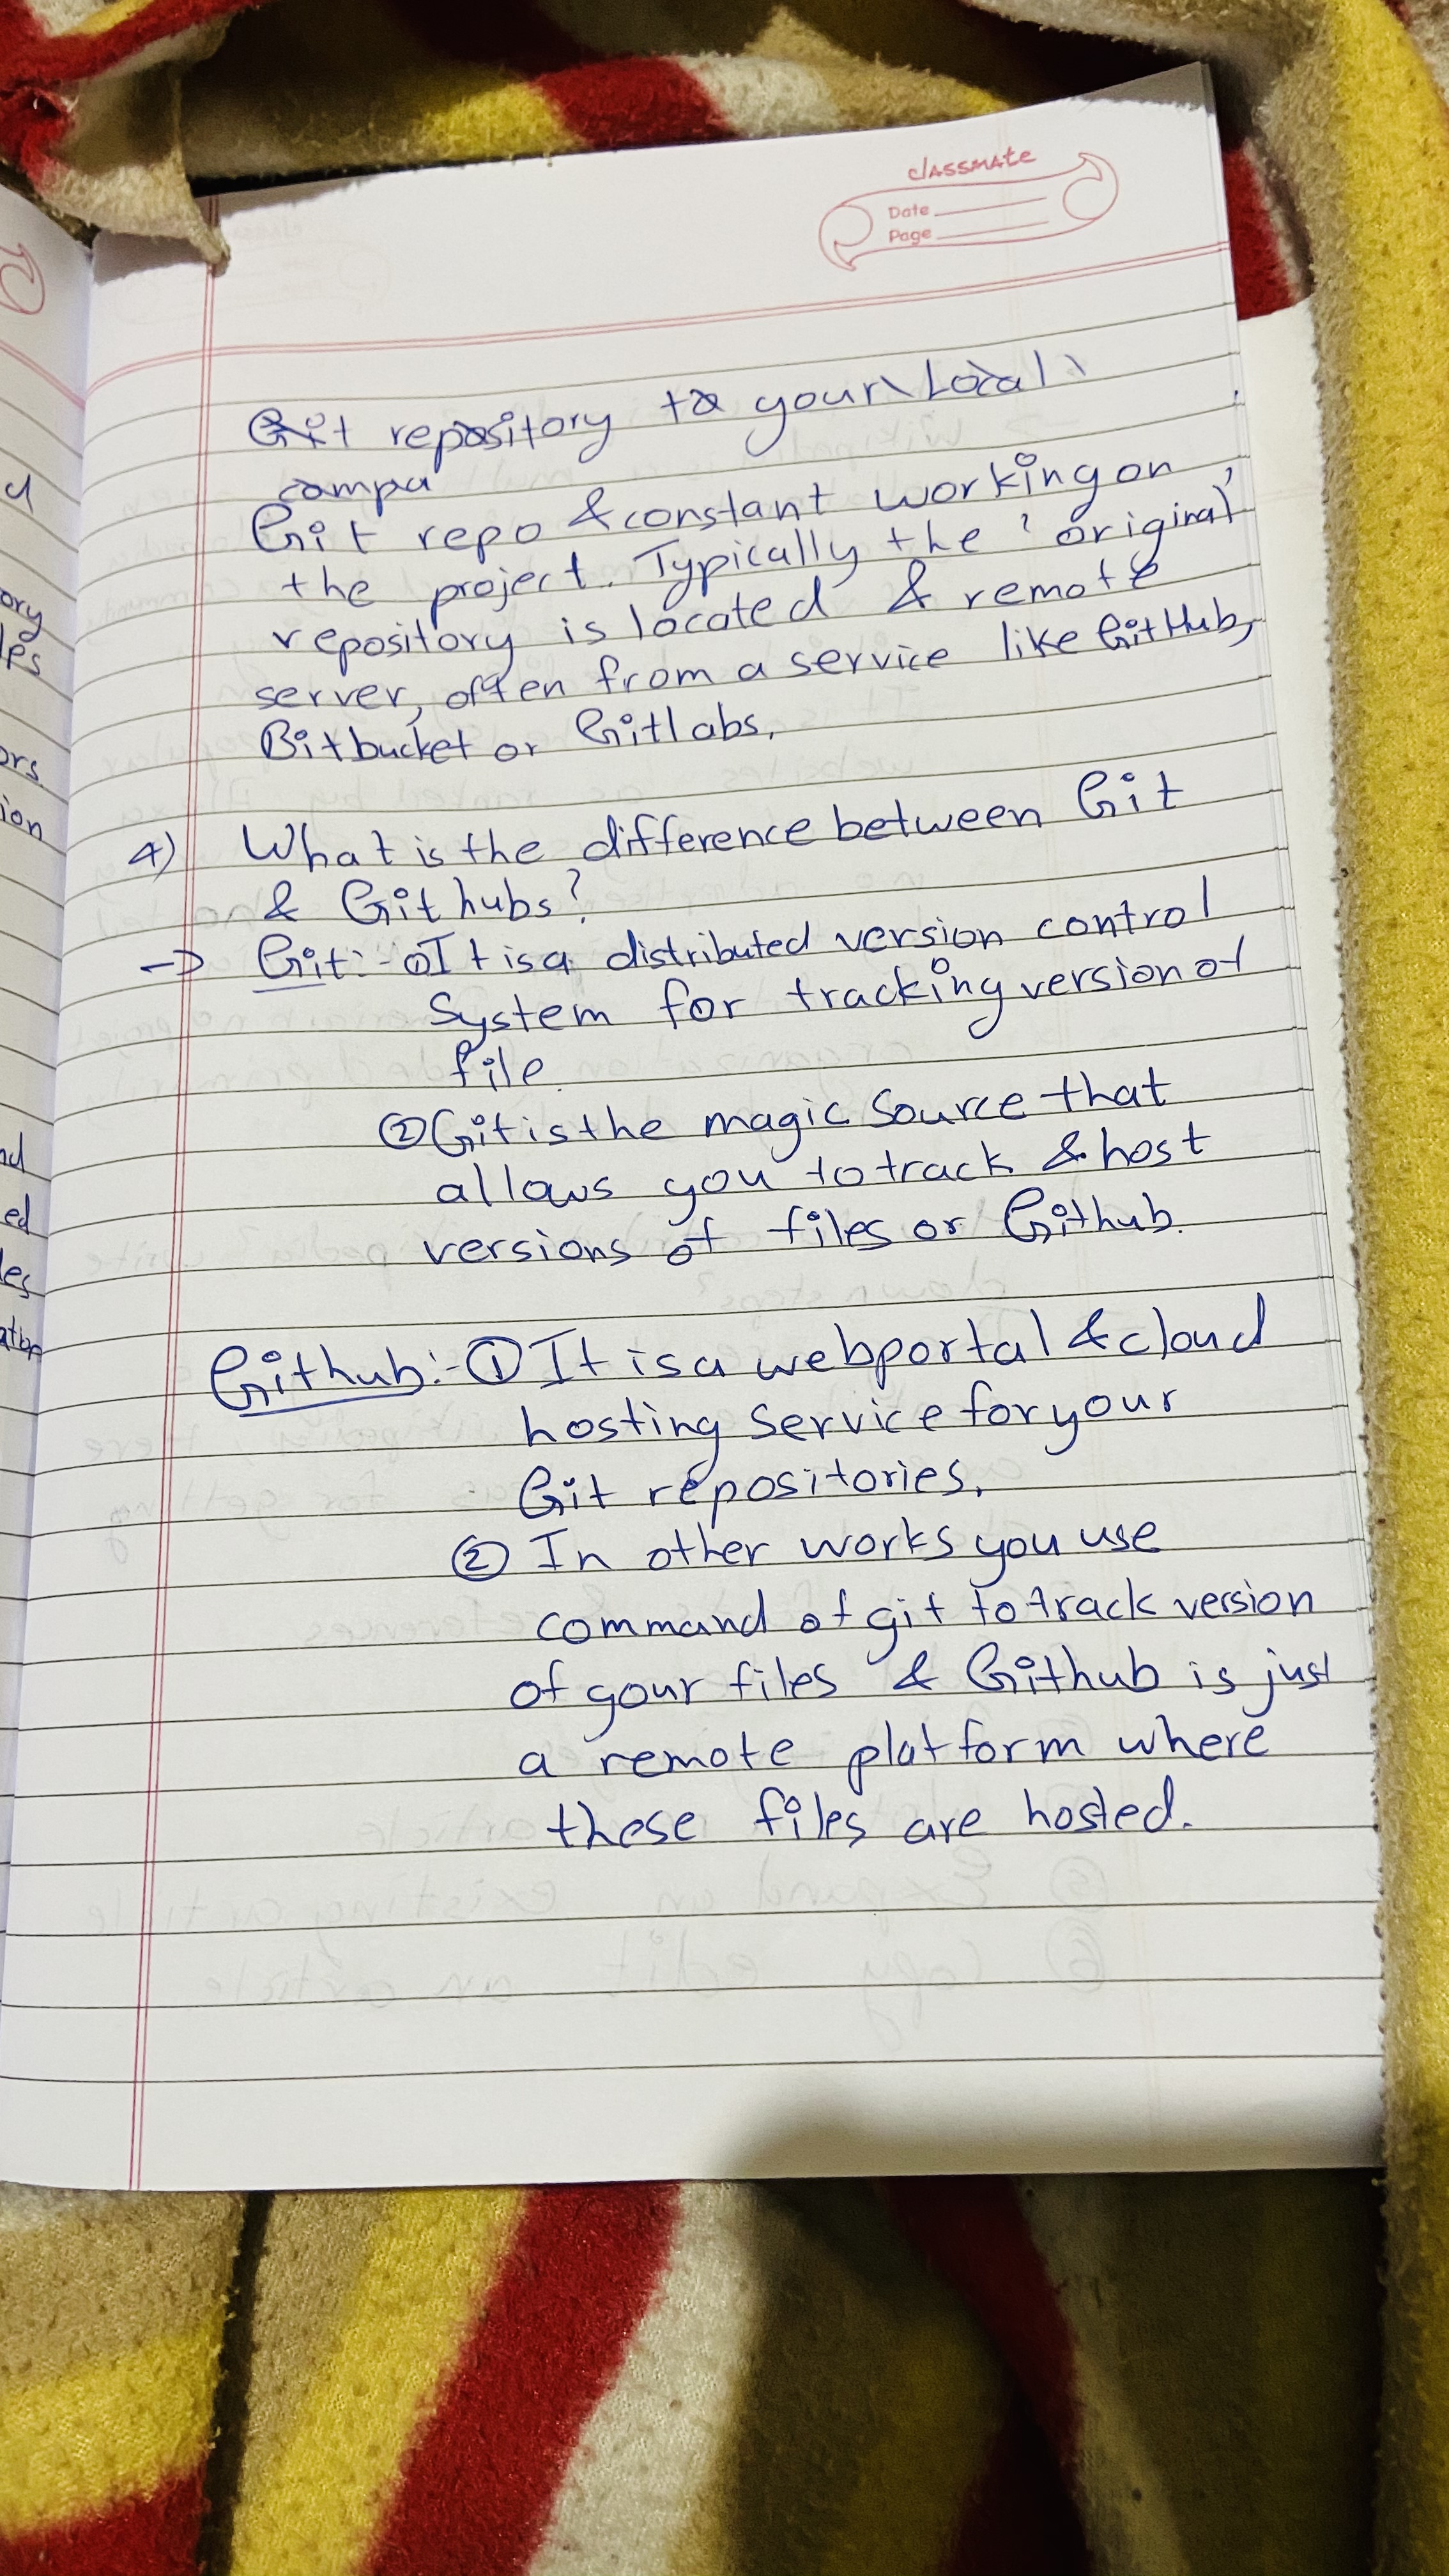 classmate
Date
Page
Git repository to your Local
compu
Git repo & constant working on
the project. Typically the 'original'
repository is located & remote
server, often from a service like GitHub,
Bitbucket or Gitlabs.
4) What is the difference between Git
& Git hubs?
→ Git:- ① It is a distributed version control
System for tracking version of
file.
② Git is the magic Source that
allows you to track & host
versions of files or Github.
Github:- ① It is a webportal & cloud
hosting Service for your
Git repositories.
② In other works you use
command of git to track version
of your files & Github is just
a remote platform where
these files are hosted.
d
ory
les
ors.
ion
ed
les